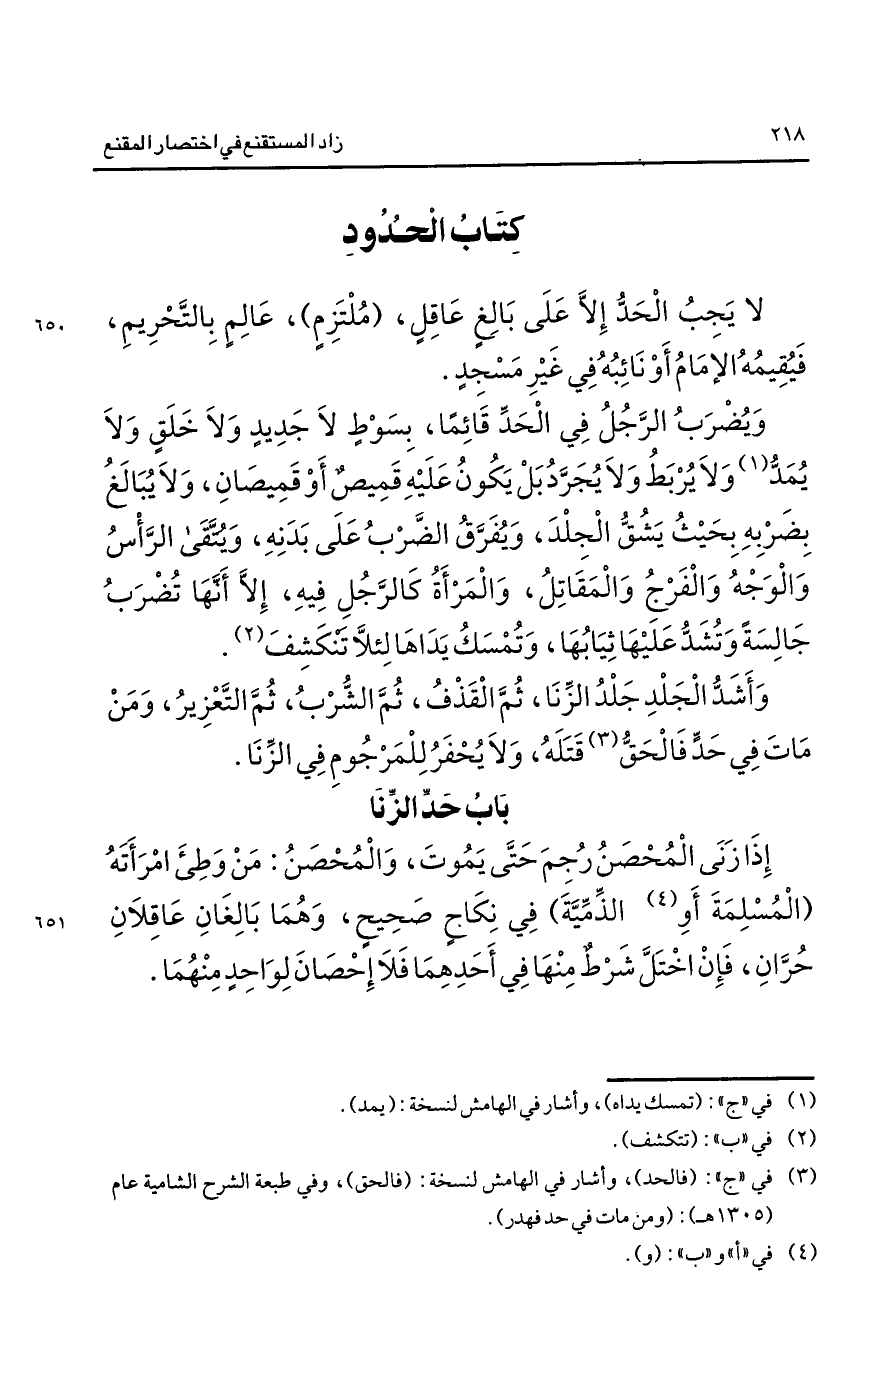 ٢١٨
زاد المستقنع في اختصار المقنع
كِتَابُ الْحُدُودِ
لا يَجِبُ الْحَدُّ إِلاَّ عَلَى بَالِغٍ عَاقِلٍ، (مُلْتَزِمٍ)، عَالِمٍ بِالتَّحْرِيمِ،
٦٥٠
فَيُقِيمُهُ الإمَامُ أَوْ نَائِبُهُ فِي غَيْرِ مَسْجِدٍ.
وَيُضْرَبُ الرَّجُلُ فِي الْحَدِّ قَائِمًا، بِسَوْطٍ لاَ جَدِيدٍ وَلاَ خَلَقٍ وَلاَ
يُمَدُّ(١) وَلاَ يُرْبَطُ وَلاَ يُجَرَّدُ بَلْ يَكُونُ عَلَيْهِ قَمِيصٌ أَوْ قَمِيصَانِ، وَلاَ يُبَالَغُ
بِضَرْبِهِ بِحَيْثُ يَشُقُّ الْجِلْدَ، وَيُفَرَّقُ الضَّرْبُ عَلَى بَدَنِهِ، وَيُتَّقَىٰ الرَّأْسُ
وَالْوَجْهُ وَالْفَرْجُ وَالْمَقَاتِلُ، وَالْمَرْأَةُ كَالرَّجُلِ فِيهِ، إِلاَّ أَنَّهَا تُضْرَبُ
جَالِسَةً وَتُشَدُّ عَلَيْهَا ثِيَابُهَا، وَتُمْسَكُ يَدَاهَا لِئلاَّ تَنْكَشِفَ(٢).
وَأَشَدُّ الْجَلْدِ جَلْدُ الزِّنَا، ثُمَّ الْقَذْفُ، ثُمَّ الشُّرْبُ، ثُمَّ التَّعْزِيرُ، وَمَنْ
مَاتَ فِي حَدٍّ فَالْحَقُّ(٣) قَتَلَهُ، وَلاَ يُحْفَرُ لِلْمَرْجُومِ فِي الزِّنَا.
بَابُ حَدِّ الزِّنَا
إِذَا زَنَى الْمُحْصَنُ رُجِمَ حَتَّى يَمُوتَ، وَالْمُحْصَنُ: مَنْ وَطِئَ امْرَأَتَهُ
(الْمُسْلِمَةَ أَوِ(٤) الذِّمِّيَّةَ) فِي نِكَاحٍ صَحِيحٍ، وَهُمَا بَالِغَانِ عَاقِلاَنِ
٦٥١
حُرَّانِ، فَإِنْ اخْتَلَّ شَرْطٌ مِنْهَا فِي أَحَدِهِمَا فَلاَ إِحْصَانَ لِوَاحِدٍ مِنْهُمَا.
(١) في «ج»: (تمسك يداه)، وأشار في الهامش لنسخة: (يمد).
(٢) في «ب»: (تتكشف).
(٣) في «ج»: (فالحد)، وأشار في الهامش لنسخة: (فالحق)، وفي طبعة الشرح الشامية عام
(١٣٠٥هـ): (ومن مات في حد فهدر).
(٤) في «أ» و«ب»: (و).